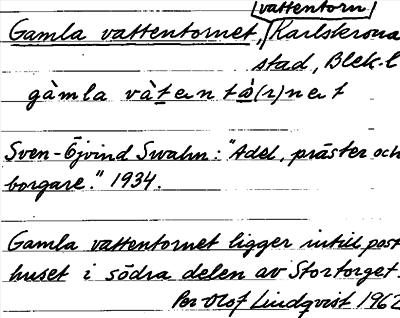 vattentorn
Gamla vattentornet, Karlskrona
stad, Blek. l
gàmla vàtentò(r)net
Sven-Öjvind Swahn: "Adel, präster och
borgare." 1934.
Gamla vattentornet ligger intill post
huset i södra delen av Stortorget.
Per Olof Lindqvist 1962